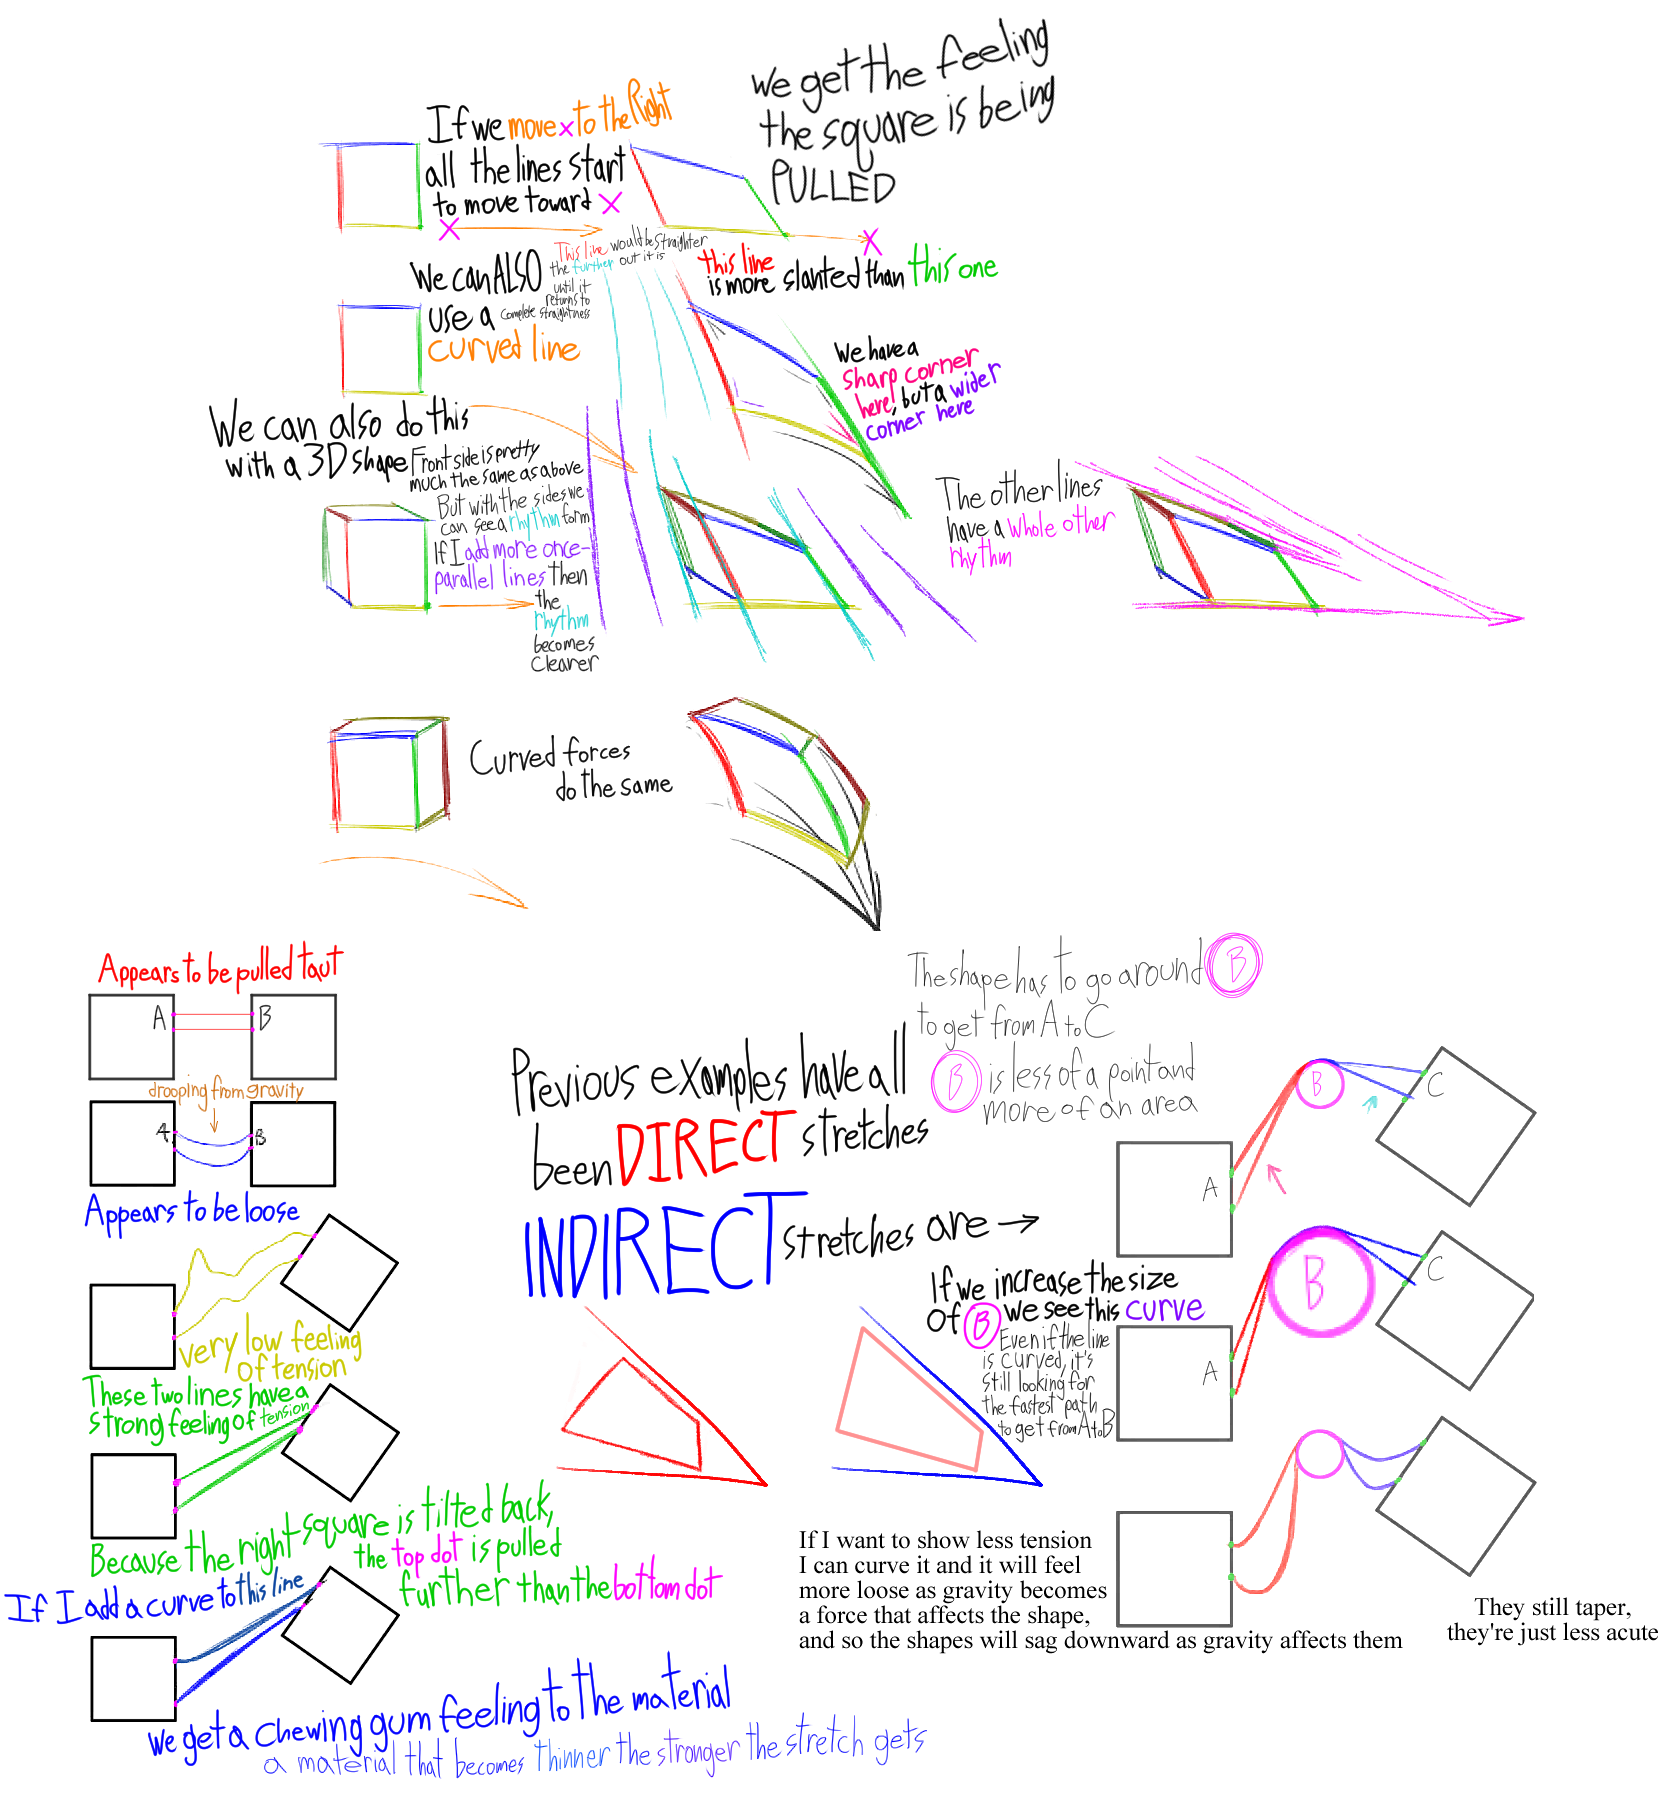 If we move x to the Right
all the lines start
to move toward X
X
We get the feeling
the square is being
PULLED
X
We can ALSO
use a
curved line
This line would be straighter
the further out it is
until it
returns to
complete straightness
this line
is more slanted than this one
We have a
sharp corner
here, but a wider
corner here
We can also do this
with a 3D shape
Front side is pretty
much the same as above
But with the sides we
can see a rhythm form
If I add more once-
parallel lines then
the
rhythm
becomes
clearer
The other lines
have a whole other
rhythm
Curved forces
do the same
Appears to be pulled taut
A
B
drooping from gravity
A
B
Appears to be loose
very low feeling
of tension
These two lines have a
strong feeling of tension
Because the right square is tilted back,
the top dot is pulled
further than the bottom dot
If I add a curve to this line
We get a chewing gum feeling to the material
a material that becomes thinner the stronger the stretch gets
Previous examples have all
been DIRECT stretches
INDIRECT stretches are →
The shape has to go around B
to get from A to C
B is less of a point and
more of an area
A
B
C
If we increase the size
Of B we see this curve
Even if the line
is curved, it's
still looking for
the fastest path
to get from A to B
A
B
C
If I want to show less tension
I can curve it and it will feel
more loose as gravity becomes
a force that affects the shape,
and so the shapes will sag downward as gravity affects them
They still taper,
they're just less acute